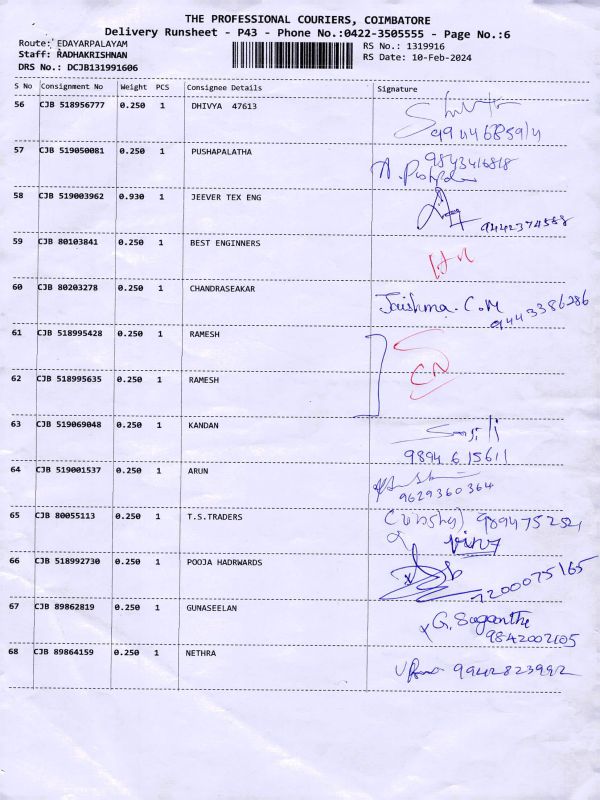 THE PROFESSIONAL COURIERS, COIMBATORE
Delivery Runsheet - P43 - Phone No.:0422-3505555 - Page No.:6
Route: EDAYARPALAYAM
RS No.: 1319916
Staff: RADHAKRISHNAN
RS Date: 10-Feb-2024
DRS No.: DCJB131991606
S No Consignment No Weight PCS Consignee Details Signature
56 CJB 518956777 0.250 1 DHIVYA 47613
9944685914
57 CJB 519050081 0.250 1 PUSHAPALATHA 9843416818
58 CJB 519003962 0.930 1 JEEVER TEX ENG
9442374588
59 CJB 80103841 0.250 1 BEST ENGINNERS
60 CJB 80203278 0.250 1 CHANDRASEAKAR
Jaishma. C.M
9443386286
61 CJB 518995428 0.250 1 RAMESH
CN
62 CJB 518995635 0.250 1 RAMESH
63 CJB 519069048 0.250 1 KANDAN
9894615611
64 CJB 519001537 0.250 1 ARUN
9629360364
65 CJB 80055113 0.250 1 T.S.TRADERS
9894752521
66 CJB 518992730 0.250 1 POOJA HADRWARDS
7200075165
67 CJB 89862819 0.250 1 GUNASEELAN
9842002105
68 CJB 89864159 0.250 1 NETHRA 9942823992